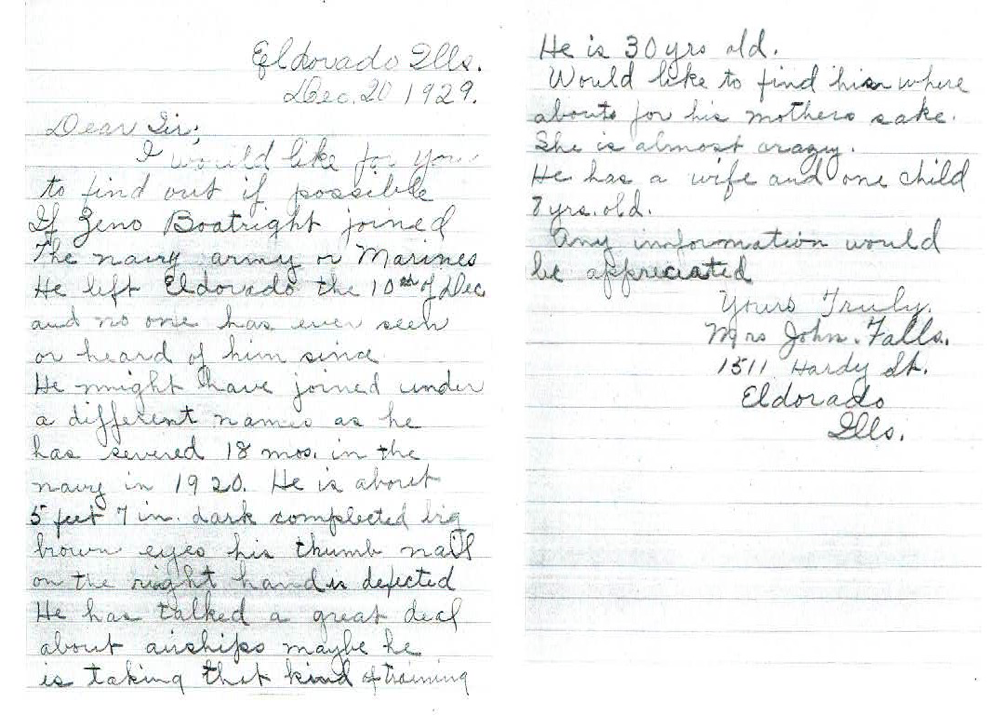 Eldorado Ills.
Dec. 20 1929.
Dear Sir;
I would like for you
to find out if possible
If Zeno Boatright joined
The navy army or Marines
He left Eldorado the 10th of Dec
and no one has ever seen
or heard of him since
He might have joined under
a different names as he
has severed 18 mos. in the
navy in 1920. He is about
5 feet 7 in. dark complected big
brown eyes his thumb nail
on the right hand is defected
He has talked a great deal
about airships maybe he
is taking that kind of training
He is 30 yrs old.
Would like to find his where
abouts for his mothers sake.
She is almost crazy.
He has a wife and one child
7 yrs. old.
Any information would
be appreciated
Yours Truly.
Mrs John. Falls.
1511 Hardy St.
Eldorado
Ills.